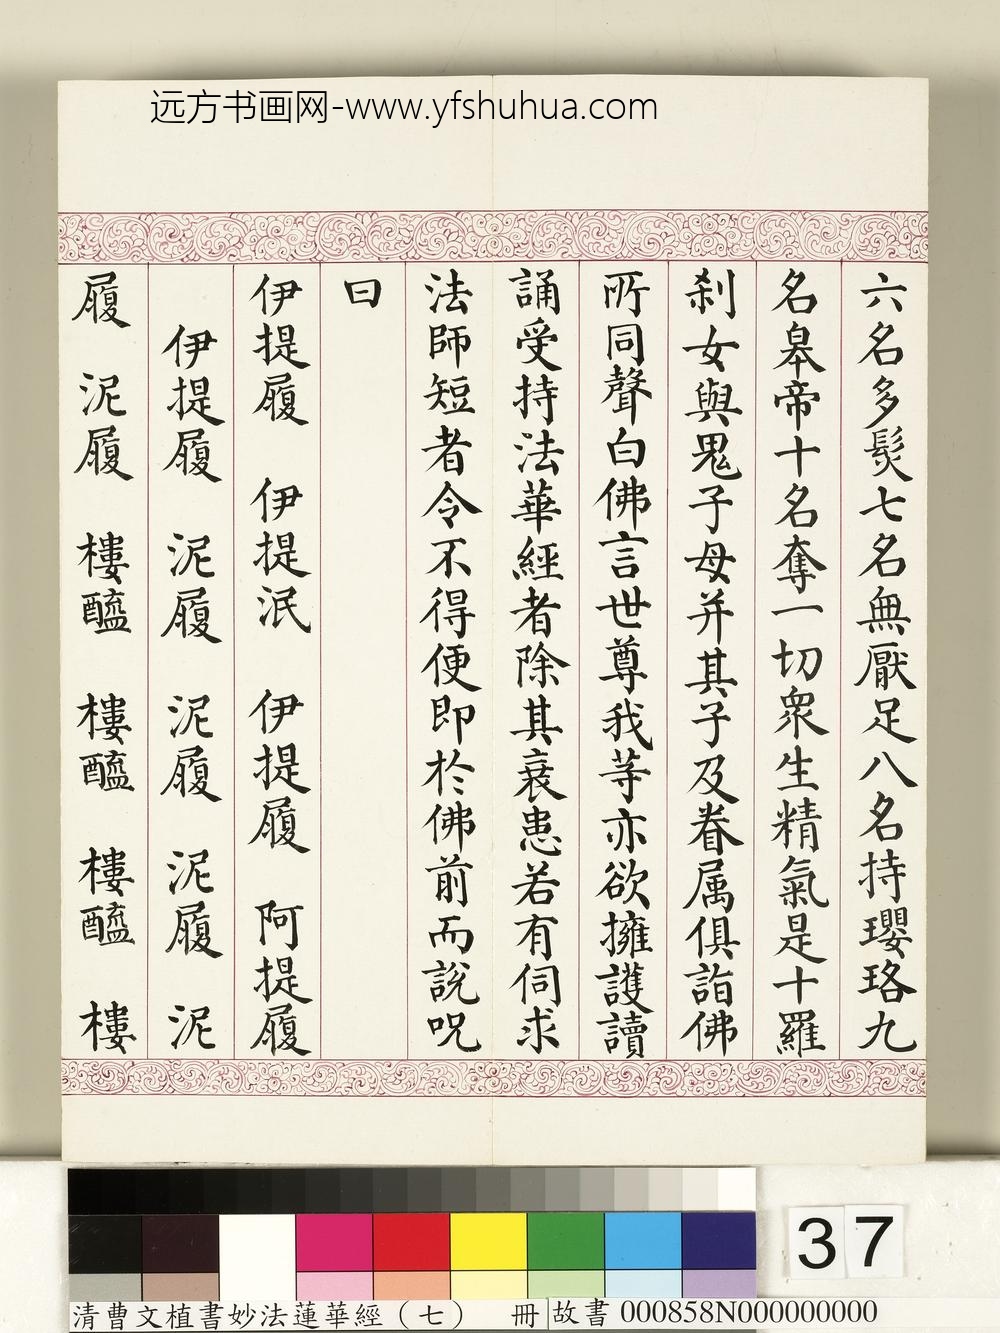 远方书画网-www.yfshuhua.com
六名多髮七名無厭足八名持瓔珞九
名皋帝十名奪一切衆生精氣是十羅
刹女與鬼子母并其子及眷属俱詣佛
所同聲白佛言世尊我等亦欲擁護讀
誦受持法華經者除其衰患若有伺求
法師短者令不得便即於佛前而說呪
曰
伊提履　伊提泯　伊提履　阿提履
伊提履　泥履　泥履　泥履　泥
履　泥履　樓醯　樓醯　樓醯　樓
37
清曹文植書妙法蓮華經（七）　冊
故書 000858N000000000